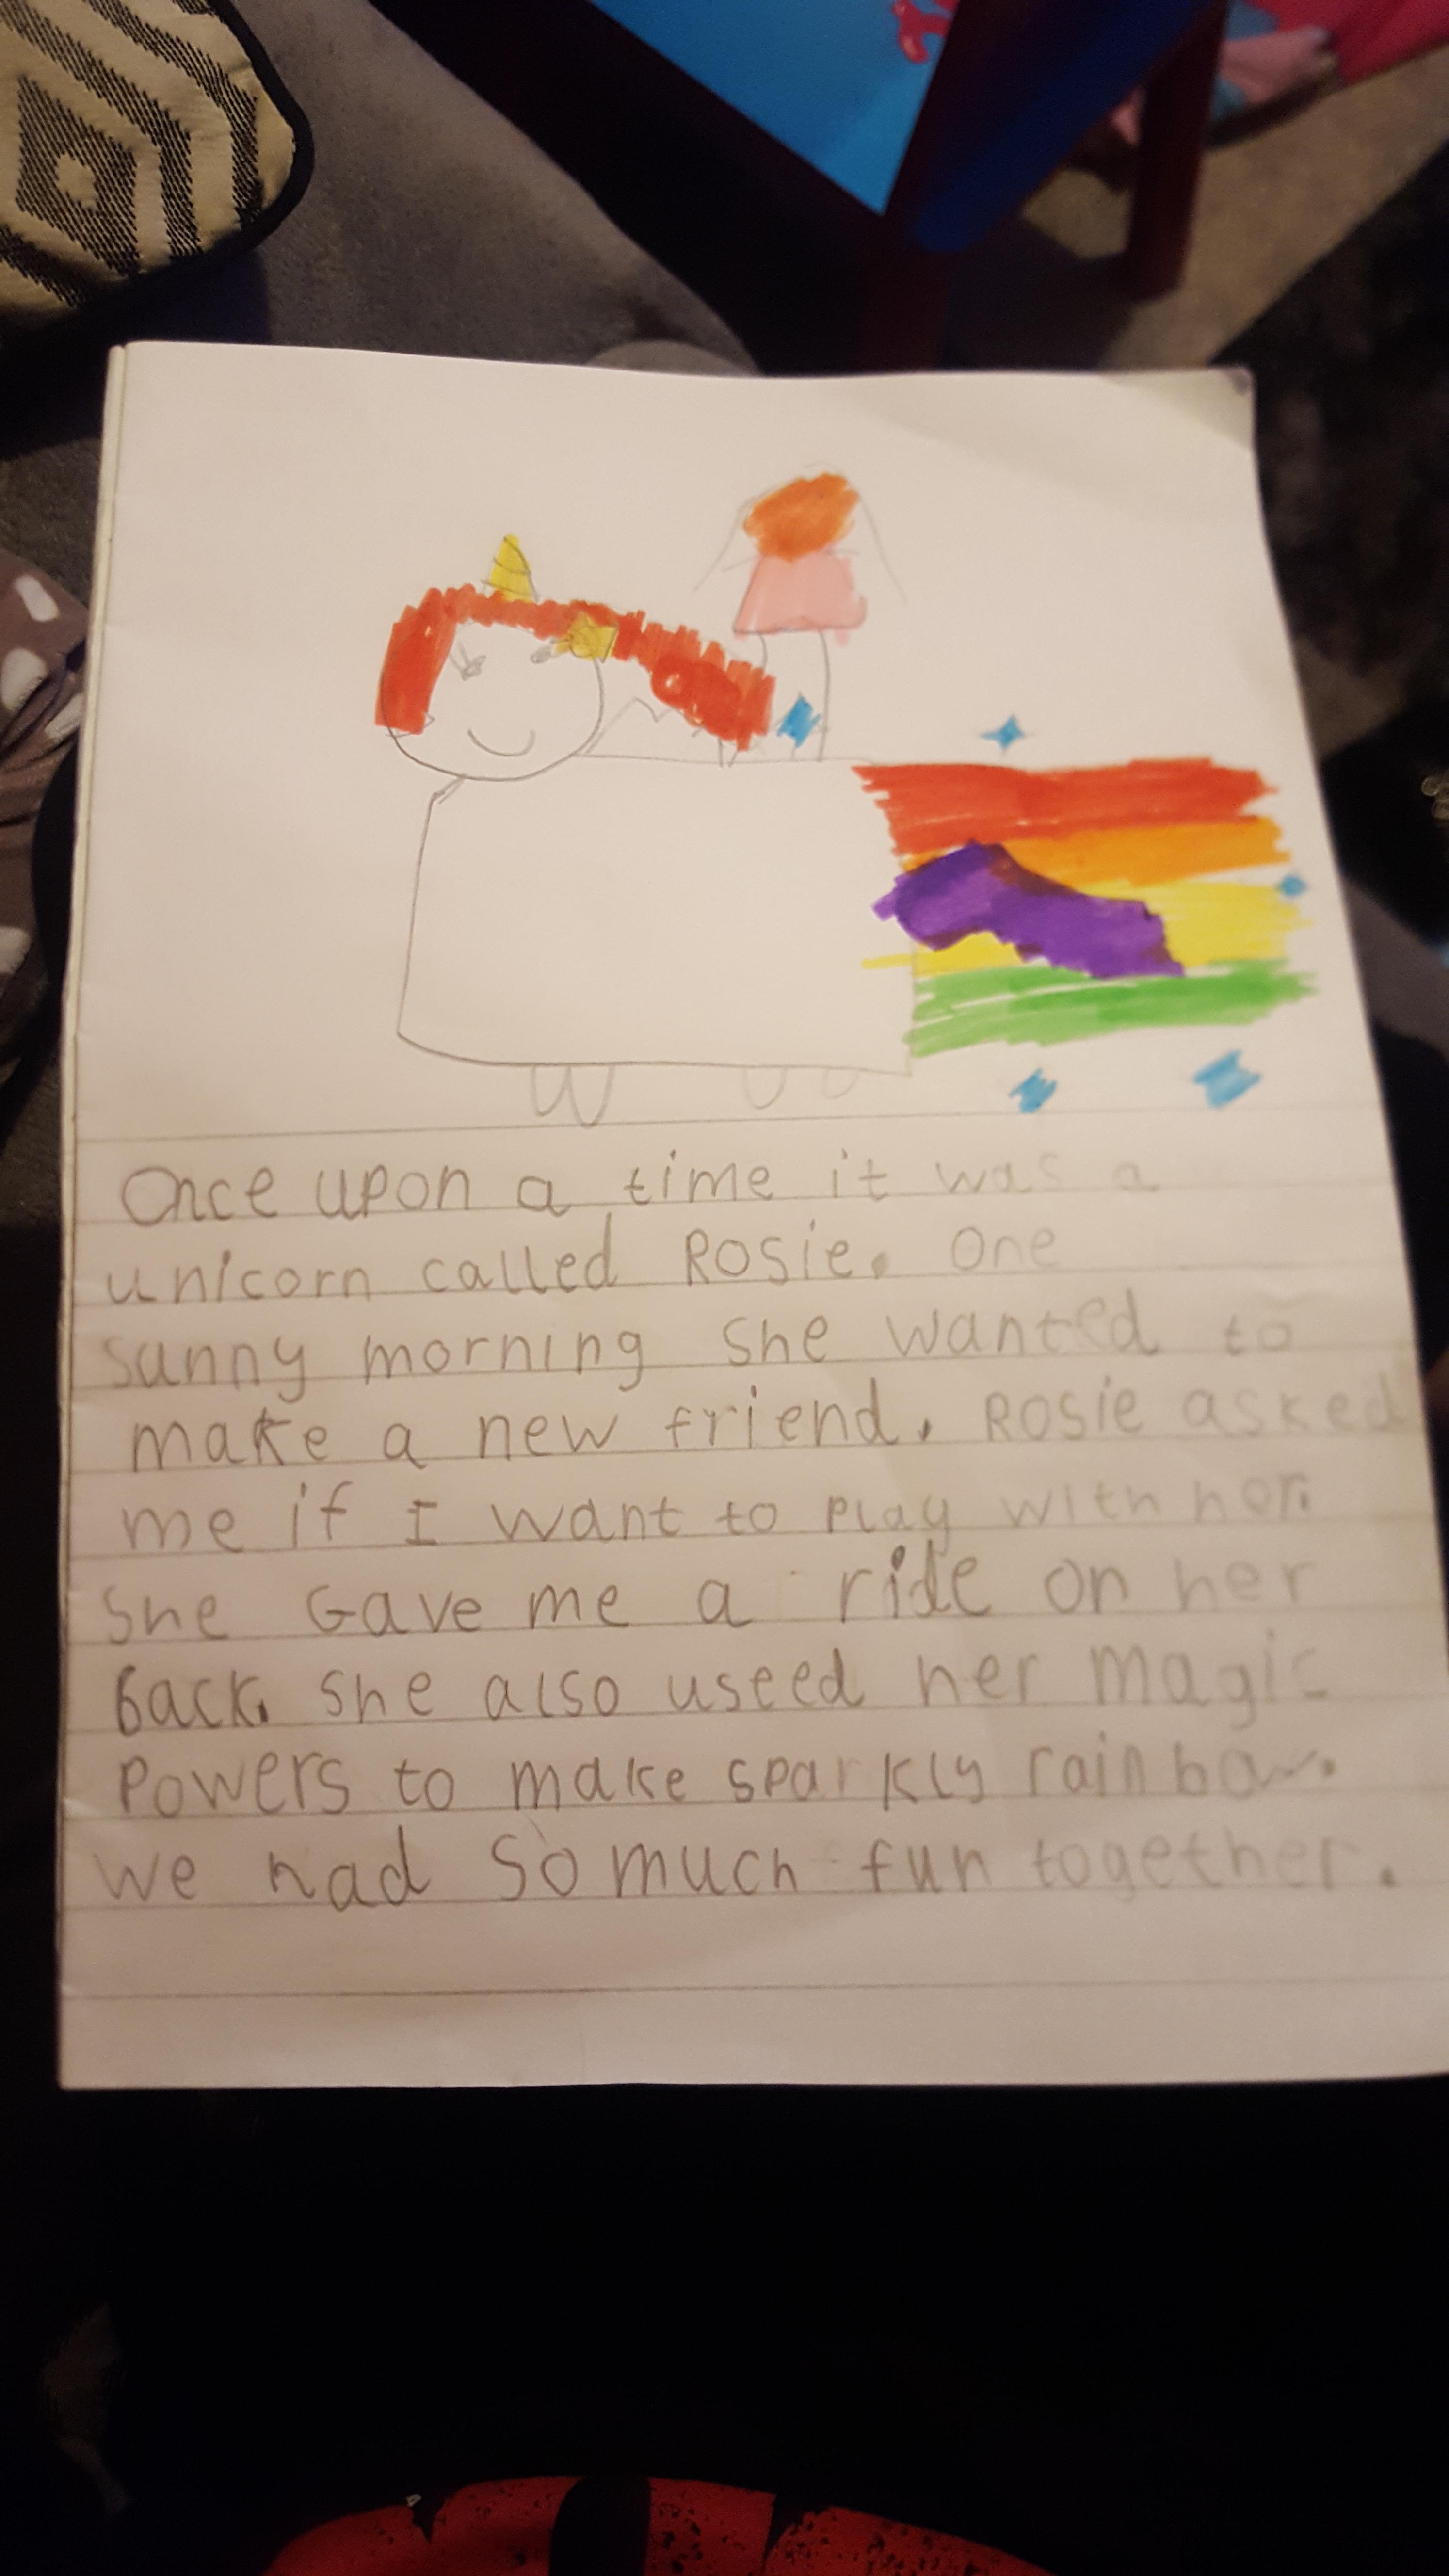 Once upon a time it was a
unicorn called Rosie. One
sunny morning she wanted to
make a new friend. Rosie asked
me if I want to play with her.
She Gave me a ride on her
back. She also useed her magic
Powers to make sparkly rainbow.
We had So much fun together.